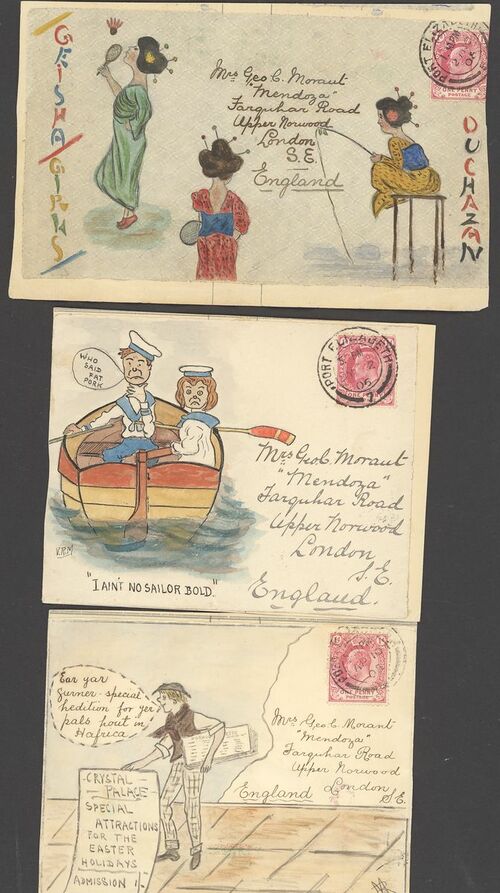 GEISHA GIRLS
Mrs Geo. C. Moraut
"Mendoza"
Farquhar Road
Upper Norwood
London
S.E.
England
OUCHAZAN
PORT ELIZABETH
05
ONE PENNY
POSTAGE
WHO
SAID
FAT
PORK
PORT ELIZABETH
2
05
7
ONE PENNY
Mrs Geo. C. Moraut
"Mendoza"
Farquhar Road
Upper Norwood
London
S.E.
England.
V.R.M
"I AIN'T NO SAILOR BOLD."
Ear yar
gurner-special
hedition for yer
pals hout in
Hafrica
CRYSTAL
PALACE
SPECIAL
ATTRACTIONS
FOR THE
EASTER
HOLIDAYS
ADMISSION 1/-
ONE PENNY
POSTAGE
Mrs Geo. C. Morant
"Mendoza"
Farquhar Road
Upper Norwood
England London
S.E.